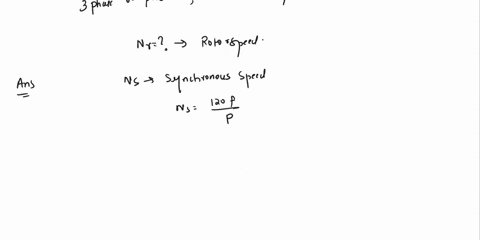 3 phase
Nr = ? → Rotor speed.
Ans
Ns → Synchronous Speed
Ns = 120 P / P